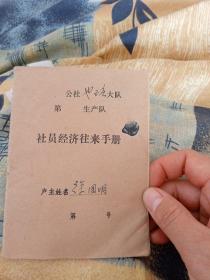 公社 大队
第 生产队
社员经济往来手册
户主姓名 国明
第 号